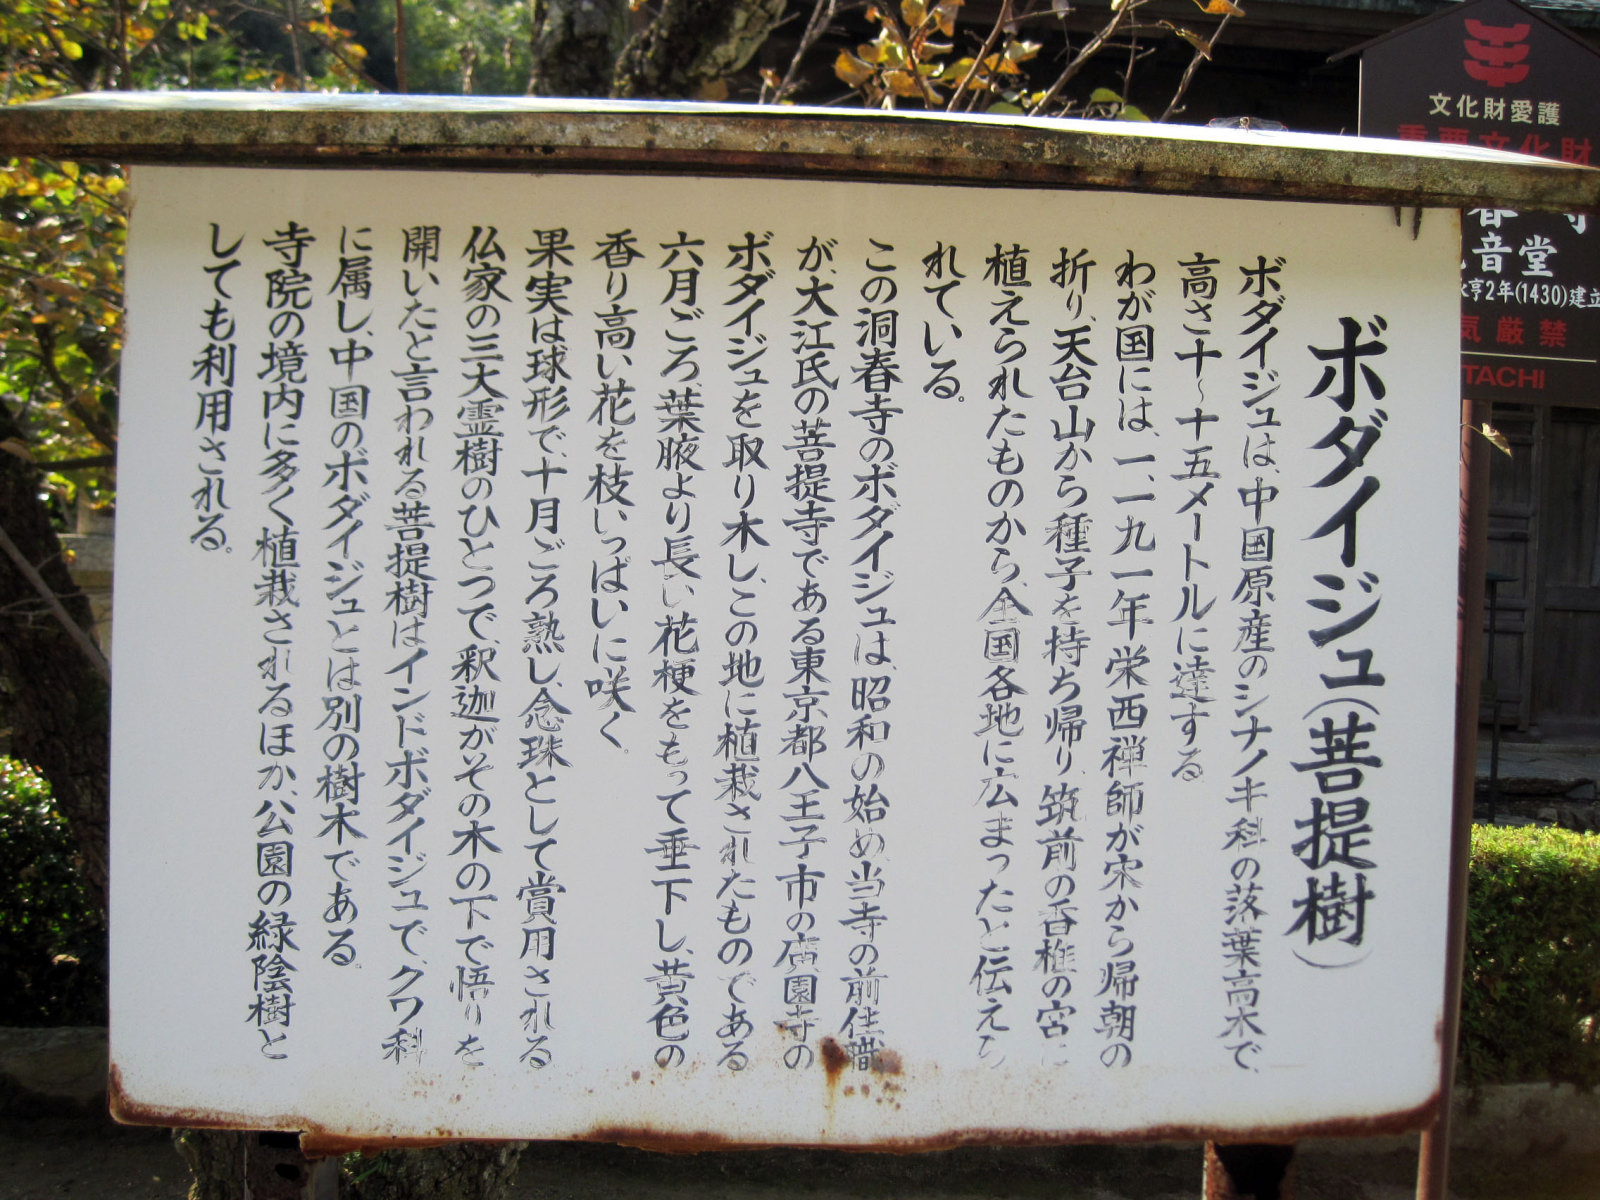 ボダイジュ(菩提樹)
ボダイジュは、中国原産のシナノキ科の落葉高木で、
高さ十〜十五メートルに達する
わが国には、一、一九一年栄西禅師が宋から帰朝の
折り、天台山から種子を持ち帰り、筑前の香椎の宮に
植えられたものから、全国各地に広まったと伝えら
れている。
この洞春寺のボダイジュは、昭和の始め当寺の前住職
が、大江氏の菩提寺である東京都八王子市の廣園寺の
ボダイジュを取り木し、この地に植栽されたものである
六月ごろ、葉腋より長い花梗をもって垂下し、黄色の
香り高い花を枝いっぱいに咲く。
果実は球形で、十月ごろ熟し、念珠として賞用される
仏家の三大霊樹のひとつで、釈迦がその木の下で悟りを
開いたと言われる菩提樹はインドボダイジュで、クワ科
に属し、中国のボダイジュとは別の樹木である。
寺院の境内に多く植栽されるほか、公園の緑陰樹と
しても利用される。
文化財愛護
重要文化財
春寺
音堂
永亨2年(1430)建立
気厳禁
TACHI